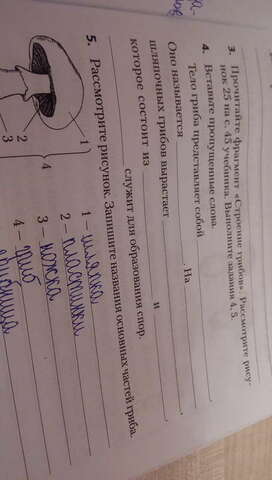 3. Прочитайте фрагмент «Строение грибов». Рассмотрите рису-
нок 25 на с. 45 учебника. Выполните задания 4, 5.
4. Вставьте пропущенные слова.
Тело гриба представляет собой
Оно называется . На
шляпочных грибов вырастает ,
которое состоит из и .
служит для образования спор.
5. Рассмотрите рисунок. Запишите названия основных частей гриба.
1 - шляпка
2 - пластинки
3 - ножка
4 - гриб
ница
1
2
3
4